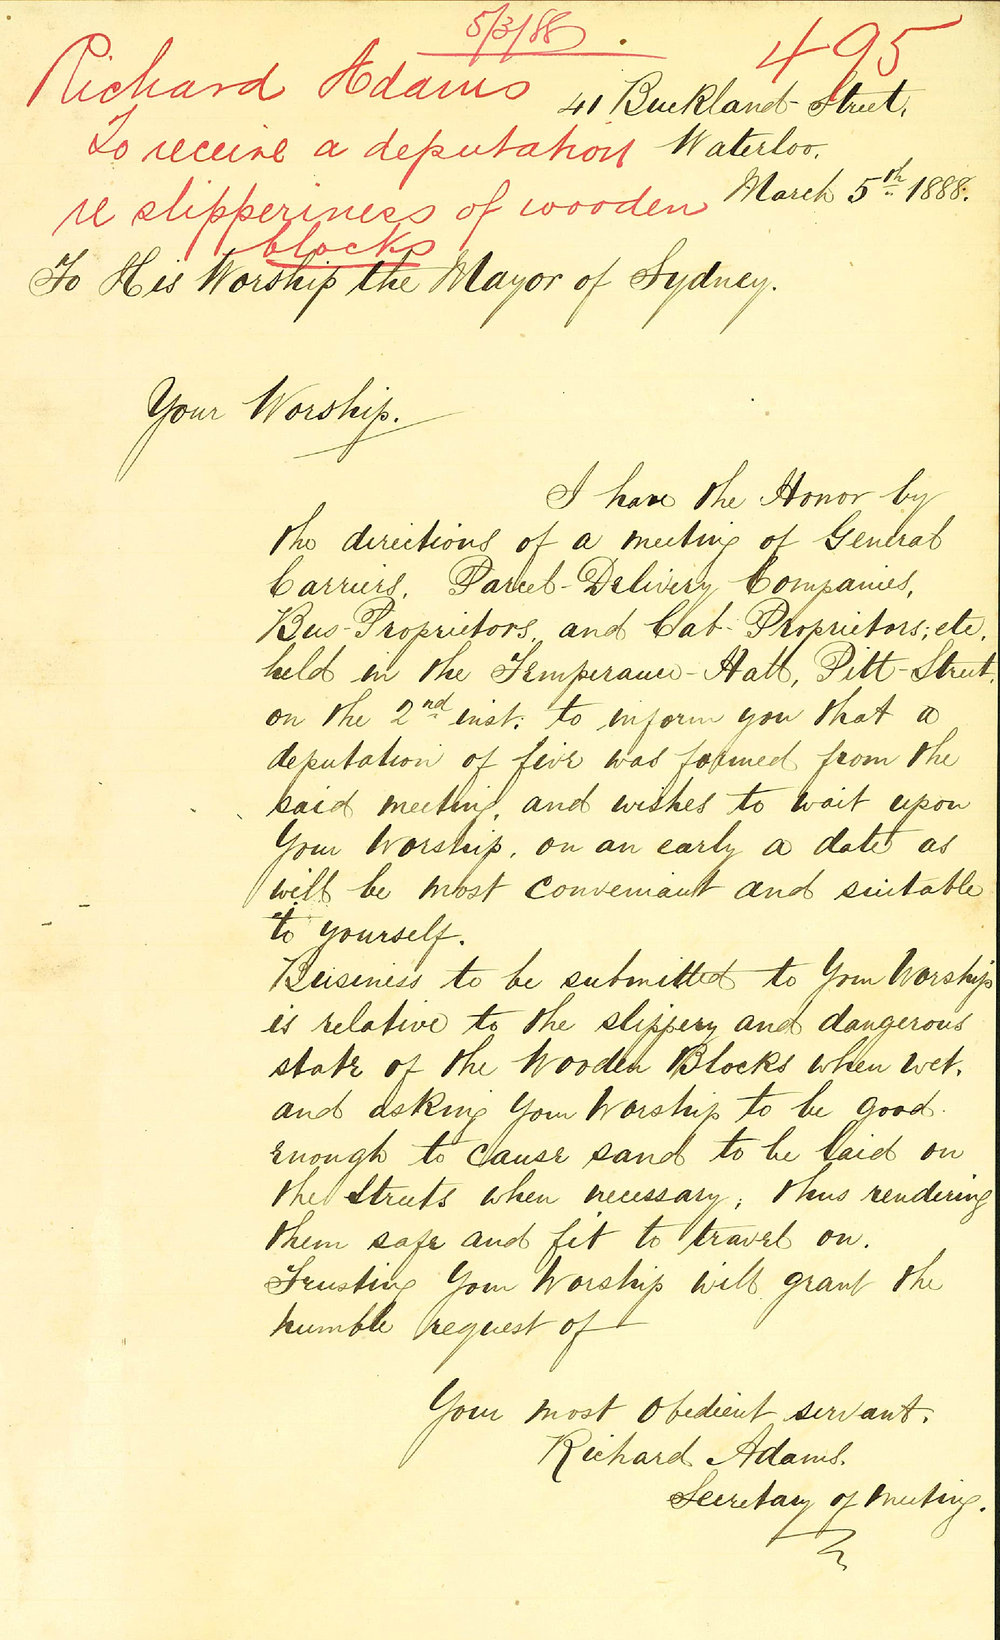 5/3/88
495
Richard Adams
To receive a deputation
re slipperiness of wooden
blocks
41 Buckland-Street,
Waterloo.
March 5th 1888.
To His Worship the Mayor of Sydney.
Your Worship.
I have the Honor by
the directions of a meeting of General
Carriers, Parcel-Delivery Companies,
Bus-Proprietors, and Cab-Proprietors; etc.
held in the Temperance-Hall, Pitt-Street,
on the 2nd inst: to inform you that a
deputation of five was formed from the
said meeting, and wishes to wait upon
Your Worship, on an early a date as
will be most conveniant and suitable
to yourself.
Buisiness to be submitted to Your Worship
is relative to the slippery and dangerous
state of the Wooden Blocks when wet.
and asking Your Worship to be good
enough to cause sand to be laid on
the Streets when necessary; thus rendering
them safe and fit to travel on.
Trusting Your Worship will grant the
humble request of
Your most obedient servant.
Richard Adams.
Secretary of meeting.